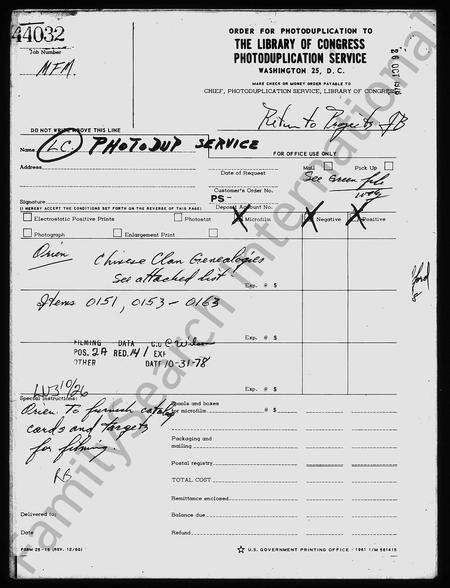 44032
Job Number
MFM.
ORDER FOR PHOTODUPLICATION TO
THE LIBRARY OF CONGRESS
PHOTODUPLICATION SERVICE
WASHINGTON 25, D. C.
MAKE CHECK OR MONEY ORDER PAYABLE TO
CHIEF, PHOTODUPLICATION SERVICE, LIBRARY OF CONGRESS
Return to Projects JB
DO NOT WRITE ABOVE THIS LINE
Name LC PHOTODUP SERVICE
FOR OFFICE USE ONLY
Address
Mail Pick Up
Date of Request
See Green file
Customer's Order No.
PS-
Signature
Deposit Account No.
(I HEREBY ACCEPT THE CONDITIONS SET FORTH ON THE REVERSE OF THIS PAGE)
Electrostatic Positive Prints Photostat Microfilm Negative Positive
Photograph Enlargement Print
Orien Chinese Clan Genealogies
See attached list
Exp. # $
Items 0151, 0153-0163
Exp. # $
FILMING DATA C.O C Wilson
POS. 2A RED. 14/1 EXP
OTHER DATE 10-31-78
10/26
Exp. # $
Special Instructions:
Orien. To furnish catalog
cards and targets
for filming.
Spools and boxes
for microfilm # $
Packaging and
mailing
Postal registry
TOTAL COST
Remittance enclosed
Delivered to:
Balance due
Date
Refund
FORM 25-15 (REV. 12/60)
☆ U.S. GOVERNMENT PRINTING OFFICE : 1961 I/M 581415
FamilySearch International